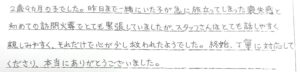 2歳9カ月の子でした。昨日まで一緒にいた子が急に旅立ってしまった喪失感と
初めての訪問火葬をとても緊張していましたが、スタッフさんはとても話しやすく
親しみやすく、それだけで心が少し救われたようでした。終始、丁寧に対応して
くださり、本当にありがとうございました。